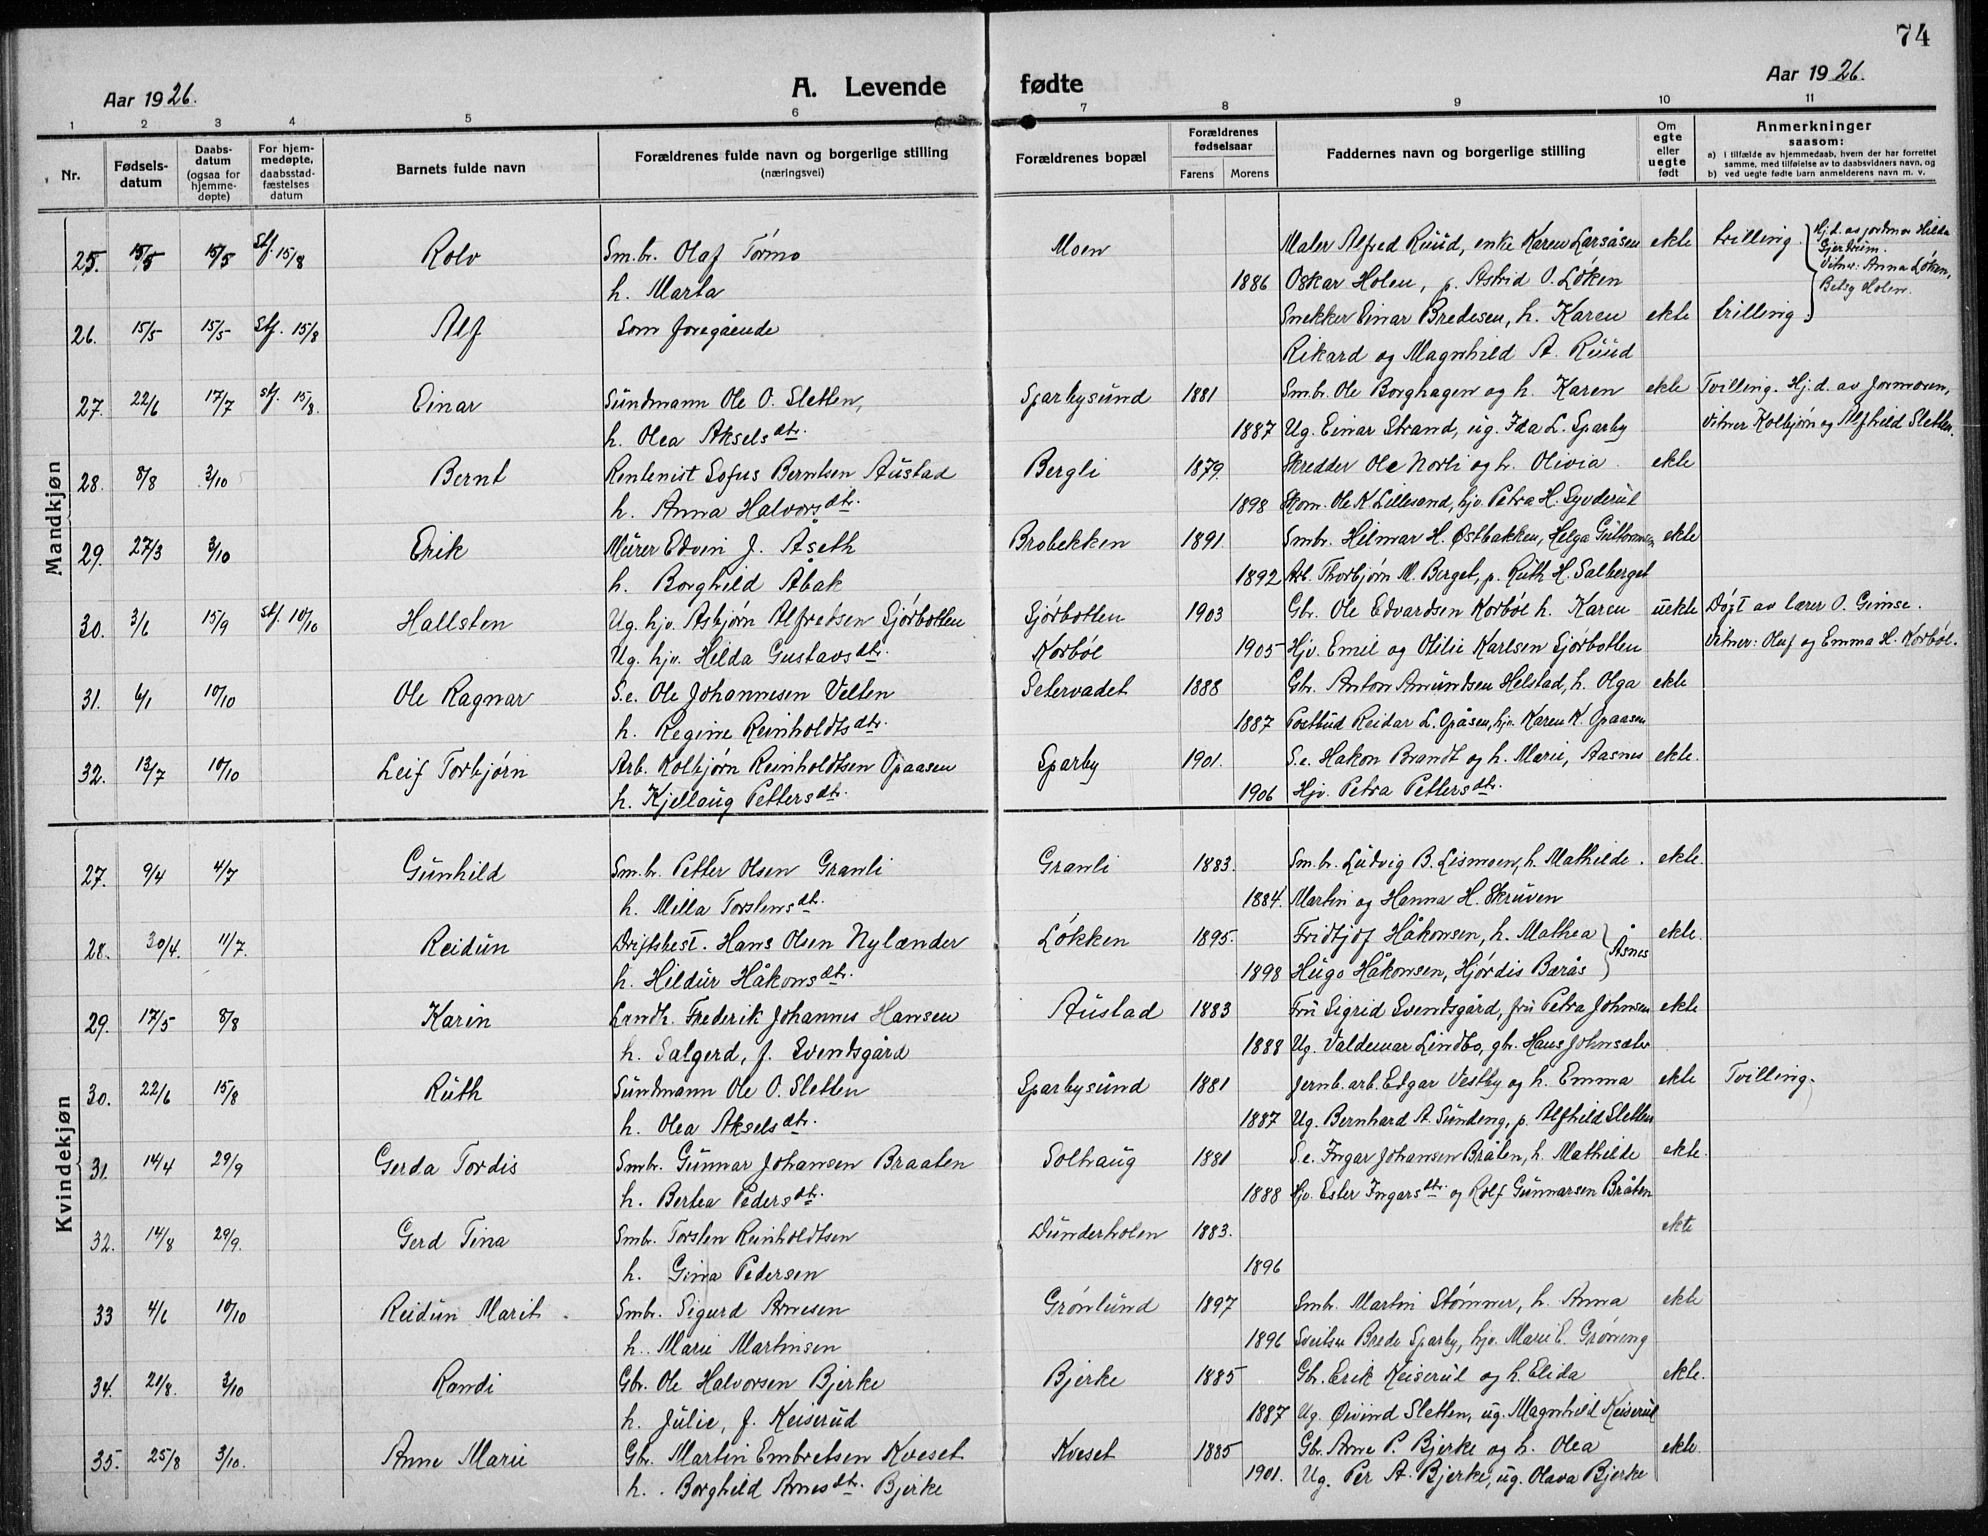 74
Aar 1926.
A. Levende fødte
Aar 1926.
1 2 3 4 5 6 7 8 9 10 11
Nr.
Fødsels-
datum
Daabs-
datum
(ogsaa for
hjemme-
døpte)
For hjem-
medøpte,
daabsstad-
fæstelses
datum
Barnets fulde navn
Forældrenes fulde navn og borgerlige stilling
(næringsvei)
Forældrenes bopæl
Forældrenes
fødselsaar
Farens Morens
Faddernes navn og borgerlige stilling
Om
egte
eller
uegte
født
Anmerkninger
saasom:
a) i tilfælde av hjemmedaab, hvem der har forrettet
samme, med tilføielse av to daabsvidners navn, og
b) ved uegte fødte barn anmelderens navn m. v.
Mandkjøn
25. 15/5 15/5 Stf. 15/8 Rolv Sm.br. Olaf Tørmo Moen Maler Alfred Ruud, enke Karen Larsåsen ekte trilling. Hj.d. av jordmor Hilda
Gjerdrum.
Vitner: Anna Løken,
Betsy Holen.
h. Marta 1886 Oskar Holen, p. Astrid O. Løken
26. 15/5 15/5 Stf. 15/8 Alf Som foregående Snekker Einar Bredesen, h. Karen ekte trilling
Rikard og Magnhild A. Ruud
27. 22/6 17/7 stf. 15/8. Einar Sundmann Ole O. Sletten, Sparbysund 1881 Smb. Ole Borghagen og h. Karen ekte Tvilling. Hj.d. av Jormoren,
h. Olea Akselsdtr. 1887 Ug. Einar Strand, ug. Ida L. Sparby Vitner Kolbjørn og Alfhild Sletten.
28. 8/8 3/10 Bernt Rentenist Sofus Berntsen Austad Bergli 1879. Skredder Ole Norli og h. Olivia. ekte
h. Anna Halvorsdtr. 1898 Skom. Ole K Lillesand, hjv. Petra H. Syvderud
29. 27/3 3/10 Erik Murer Edvin J. Åseth Brobekken 1891. Smbr. Hilmar H. Østbakken, Helga Guttormsen ekte
h. Borghild Åbak 1892 Arb. Thorbjørn M. Berget, p. Ruth H. Salberget
30. 3/6 15/9 stf. 10/10 Hallsten Ug. hjv. Asbjørn Alfredsen Sjørbotten Sjørbotten 1903 Gbr. Ole Edvardsen Korbøl h. Karen uekte Døpt av lærer O. Gimse.
Ug. hjv. Hilda Gustavsdtr. Korbøl 1905 Hjv. Emil og Otilie Karlsen Sjørbotten Vitner: Olaf og Emma H. Korbøl.
31. 6/1 10/10 Ole Ragnar S.e. Ole Johannesen Velten Setervadet 1888 Gbr. Anton Amundsen Helstad, h. Olga ekte
h. Regine Reinholdtsdtr. 1887 Postbud Reidar L. Opåsen, hjv. Karen K. Opaasen
32. 13/7 10/10 Leif Torbjørn Arb. Kolbjørn Reinholdtsen Opaasen Sparby 1901. S.e. Hakon Brandt og h. Marie, Aasnes ekte.
h. Kjellaug Pettersdtr. 1906 Hjv. Petra Pettersdtr.
Kvindekjøn
27. 9/4 4/7 Gunhild Sm.br. Petter Olsen Granli Granli 1883. Sm.br. Ludvig B. Lismoen, h. Mathilde. ekte.
h. Milla Torstensdtr. 1884. Martin og Hanna H. Skruven
28. 30/4. 11/7. Reidun Driftsbest. Hans Olsen Nylænder Løkken 1895. Fridtjof Håkonsen, h. Mathea ekte.
h. Hildur Håkonsdtr. 1898 Hugo Håkonsen, Hjørdis Børås Åsnes
29. 17/5 8/8 Karin Landh. Frederik Johannes Hansen Austad 1883 Fru Sigrid Svendsgård, fru Petra Johnsen ekte
h. Salgerd, f. Svendsgård 1888 Ug. Valdemar Lindbo, gbr. Hans Johnsæter
30. 22/6 15/8 Ruth Sundmann Ole O. Sletten Sparbysund 1881 Jernb. arb. Edgar Vestby og h. Emma ekte Tvilling.
h. Olea Akselsdtr. 1887 Ug. Bernhard A. Sundeng, p. Alfhild Sletten
31. 14/4 29/9 Gerda Tordis Smb. Gunnar Johansen Braaten Solhaug 1881 S.e. Ingar Johansen Bråten, h. Mathilde ekte.
h. Bertea Pedersdtr. 1888 Hjv. Ester Ingarsdtr. og Rolf Gunnarsen Bråten
32. 14/8 29/9. Gerd Tina Smb. Torsten Reinholdtsen Dunderholen 1883. ekte
h. Gina Pedersen 1896
33 4/6 10/10 Reidun Marit. Smb. Sigurd Arnesen Grønlund 1897 Smb. Martin Stømner, h. Anna ekte
h. Marie Martinsen 1896 Sveitser Brede Sparby, hjv. Marie E. Grøneng
34. 21/8. 3/10 Randi Gbr. Ole Halvorsen Bjerke Bjerke 1885 Gbr. Erik Keiserud og h. Elida ekte.
h. Julie, f. Keiserud 1887 Ug. Øivind Sletten, ug. Magnhild Keiserud
35. 25/8 3/10. Anne Marie Gbr. Martin Embretsen Kveset Kveset 1885 Gbr. Arne P. Bjerke og h. Olea ekte
h. Borghild Arnesdtr. Bjerke 1901. Ug. Per A. Bjerke, ug. Olava Bjerke